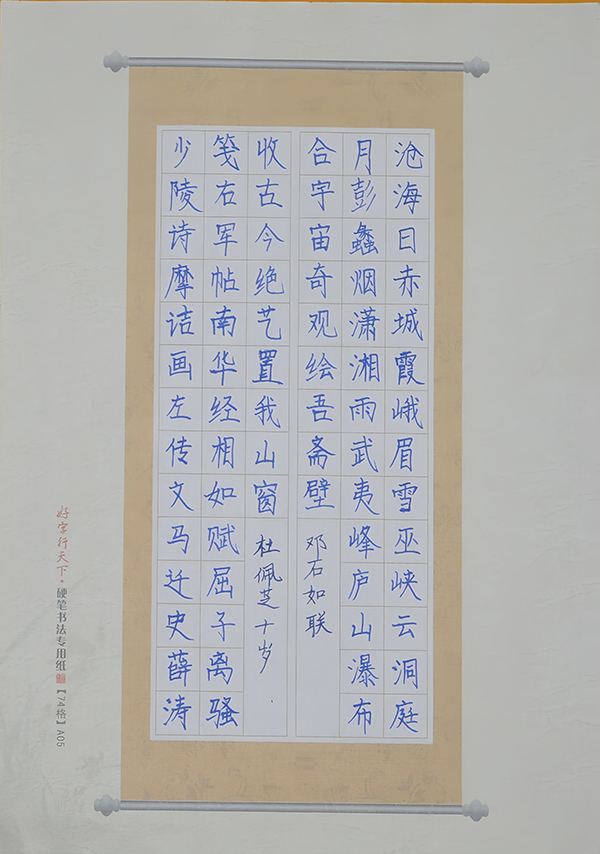 沧海日赤城霞峨眉雪巫峡云洞庭
月彭蠡烟潇湘雨武夷峰庐山瀑布
合宇宙奇观绘吾斋壁
邓石如联
少陵诗摩诘画左传文马迁史薛涛
笺右军帖南华经相如赋屈子离骚
收古今绝艺置我山窗
杜佩芝十岁
好字行天下·硬笔书法专用纸【74格】A05